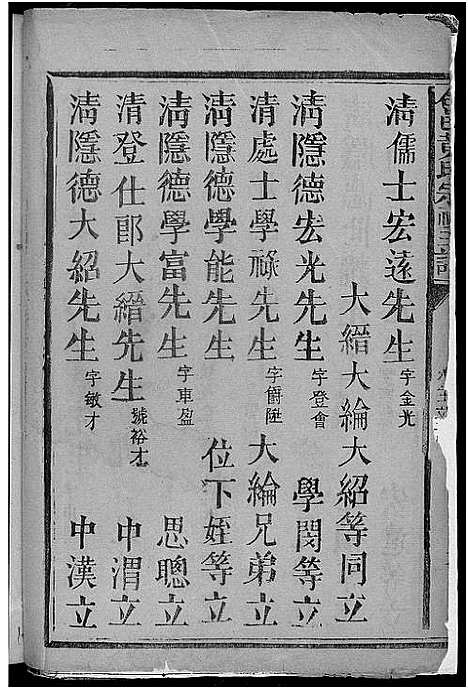 清儒士宏遠先生字金光
大縉大綸大紹等同立
清隱德宏光先生字登會 學閔等立
清處士學祿先生字爵陞 大綸兄弟立
清隱德學能先生 位下姪等立
清隱德學富先生字車盈 思聰立
清登仕郎大縉先生號裕才 中渭立
清隱德大紹先生字敏才 中漢立